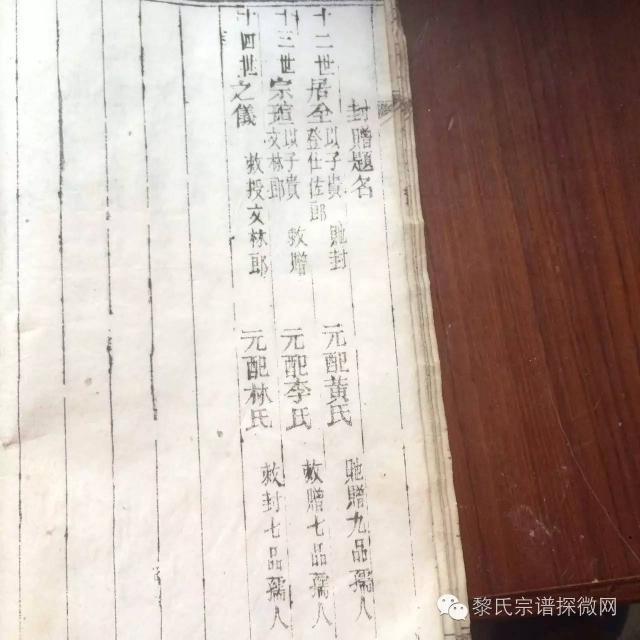 封贈題名
十二世居全以子貴馳封登仕佐郎 元配黃氏 馳贈九品孺人
十三世宗道以子貴敕贈文林郎 元配李氏 敕贈七品孺人
十四世之儀 敕授文林郎 元配林氏 敕封七品孺人
黎氏宗谱探微网